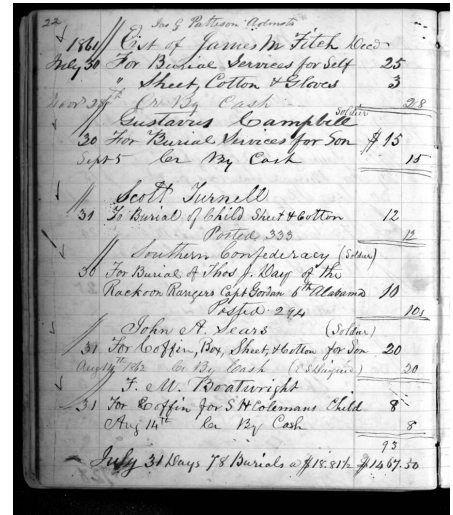 22 Jas G Patteson Admstr
1861 Est of James M Fitch Decd
July 30 For Burial Services for Self 25
" Sheet, Cotton & Gloves 3
Novr 28th Cr By Cash 28
Gustavus Campbell Soldier
30 For Burial Services for Son $15
Sept 5 Cr By Cash 15
Scott Turnell
31 To Burial of Child Sheet & Cotton 12
Posted 333 12
Southern Confederacy (Soldier)
30 For Burial of Thos J. Day of the
Rackoon Rangers Capt Gordan 6th Alabama 10
Posted 294 10
John A. Sears (Soldier)
31 For Coffin, Box, Sheet, & Cotton for Son 20
Aug 14th 1862 Cr By Cash 20
F. M. Boatwright
31 For Coffin for S H Colemans Child 8
Aug 14th Cr By Cash 8
93
July 31 Days 78 Burials a $18.81½ $1467.50